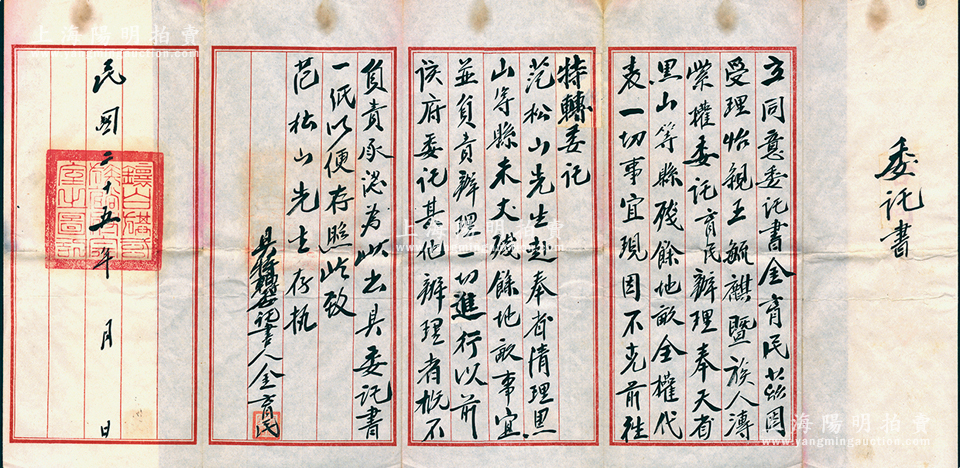 委託書
立同意委託書金育民茲因
受理怡親王毓麒暨族人溥
紫權委託育民辦理奉天省
黑山等縣殘餘地畝全權代
表一切事宜現因不克前往
特轉委託
范松山先生赴奉省清理黑
山等縣未丈殘餘地畝事宜
並負責辦理一切進行以前
該府委託其他辦理者概不
負責承認為此出具委託書
一紙以便存照此致
范松山先生存執
具委託書人金育民
民國二十五年 月 日
上海陽明拍賣
上海陽明拍賣
www.yangmingauction.com
上海陽明拍賣
www.yangmingauction.com